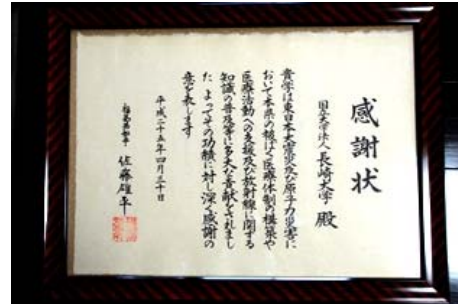 感謝状
国立大学法人 長崎大学 殿
貴学は東日本大震災及び原子力災害に
おいて本県の被ばく医療体制の構築や
医療活動への支援及び放射線に関する
知識の普及等に多大な貢献をされまし
た よってその功績に対し深く感謝の
意を表します
平成二十五年四月三十日
福島県知事 佐藤雄平